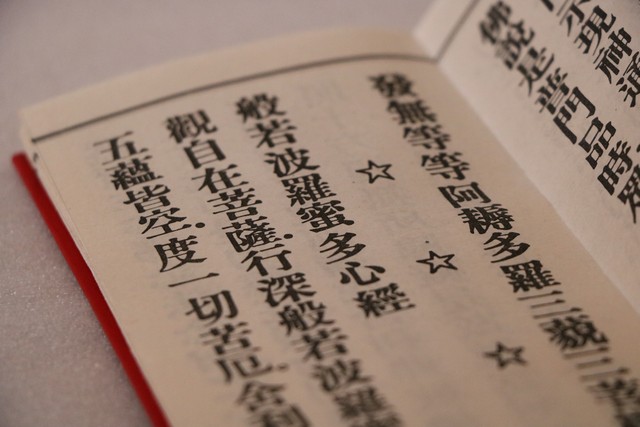 示現神通
佛說是普門品時眾
發無等等阿耨多羅三藐三菩
☆ ☆ ☆
般若波羅蜜多心經
觀自在菩薩.行深般若波羅
五蘊皆空.度一切苦厄.舍利